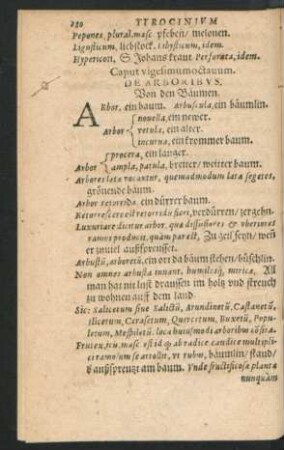 250 TYROCINIVM
Pepones, plural. masc. pfeben/ melonen.
Ligusticum, liebstock. Libysticum, idem.
Hypericon, S. Johans kraut. Perforata, idem.
Caput vigesimumoctauum.
DE ARBORIBVS,
Von den Bäumen.
ARbor, ein baum. Arbuscula, ein bäumlin.
nouella, ein newer.
Arbor vetula, ein alter.
incurua, ein krommer baum.
procera, ein langer.
Arbor ampla, patula, breiter/ weiter baum.
Arbores latæ vocantur, quemadmodum latæ segetes,
grönende baum.
Arbor retorrida, ein dürrer baum.
Retorresco est retorrida fieri, verdürren/ zergehn.
Luxuriare dicitur arbor, quæ diffusiores & vberiores
ramos producit, quàm par est, Zu geil seyn/ wen
er zuuiel außspreusset.
Arbustū, arboretū, ein ort da bäum stehen/ büschlin.
Non omnes arbusta iuuant, humilesq́; miricæ, All
man hat nit lust draussen im holtz vnd streuch
zu wohnen auff dem land.
Sic: Salicetum siue Salictū, Arundinetū, Castanetū,
Ilicetum, Cerasetum, Quercetum, Buxetū, Popu-
letum, Mespiletū: loca huiusmodi arboribus cōsita.
Frutex, icis, masc. est id q̄ ab radice caudice multipli-
ci ramosum se attollit, vt rubus, bäumlin/ staud/
außspreutz am baum. Vnde fructificosæ plantæ
nunquàm